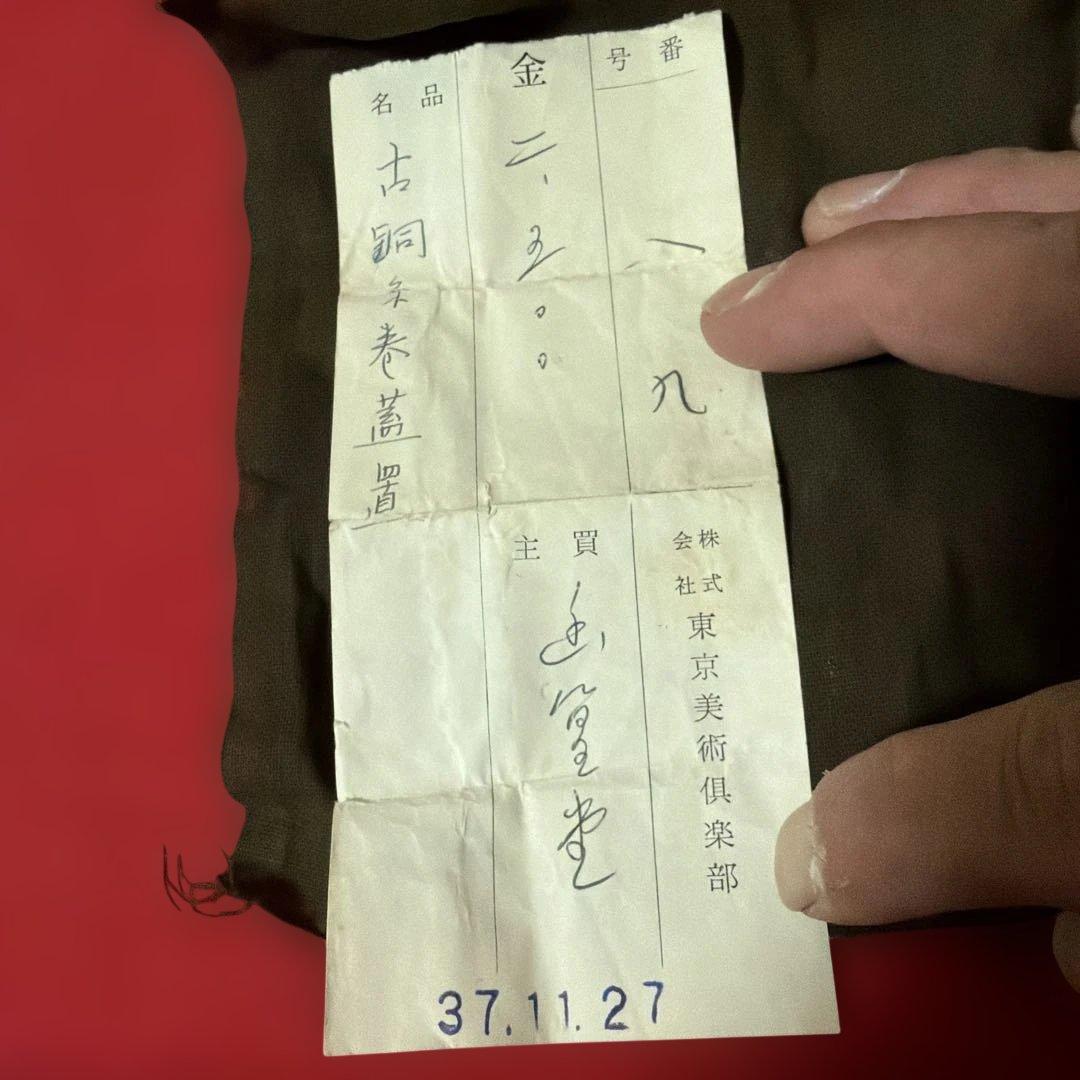 番号
一九
株式会社 東京美術倶楽部
金
二、五〇〇
買主
品名
古銅
巻蓋置
37.11.27